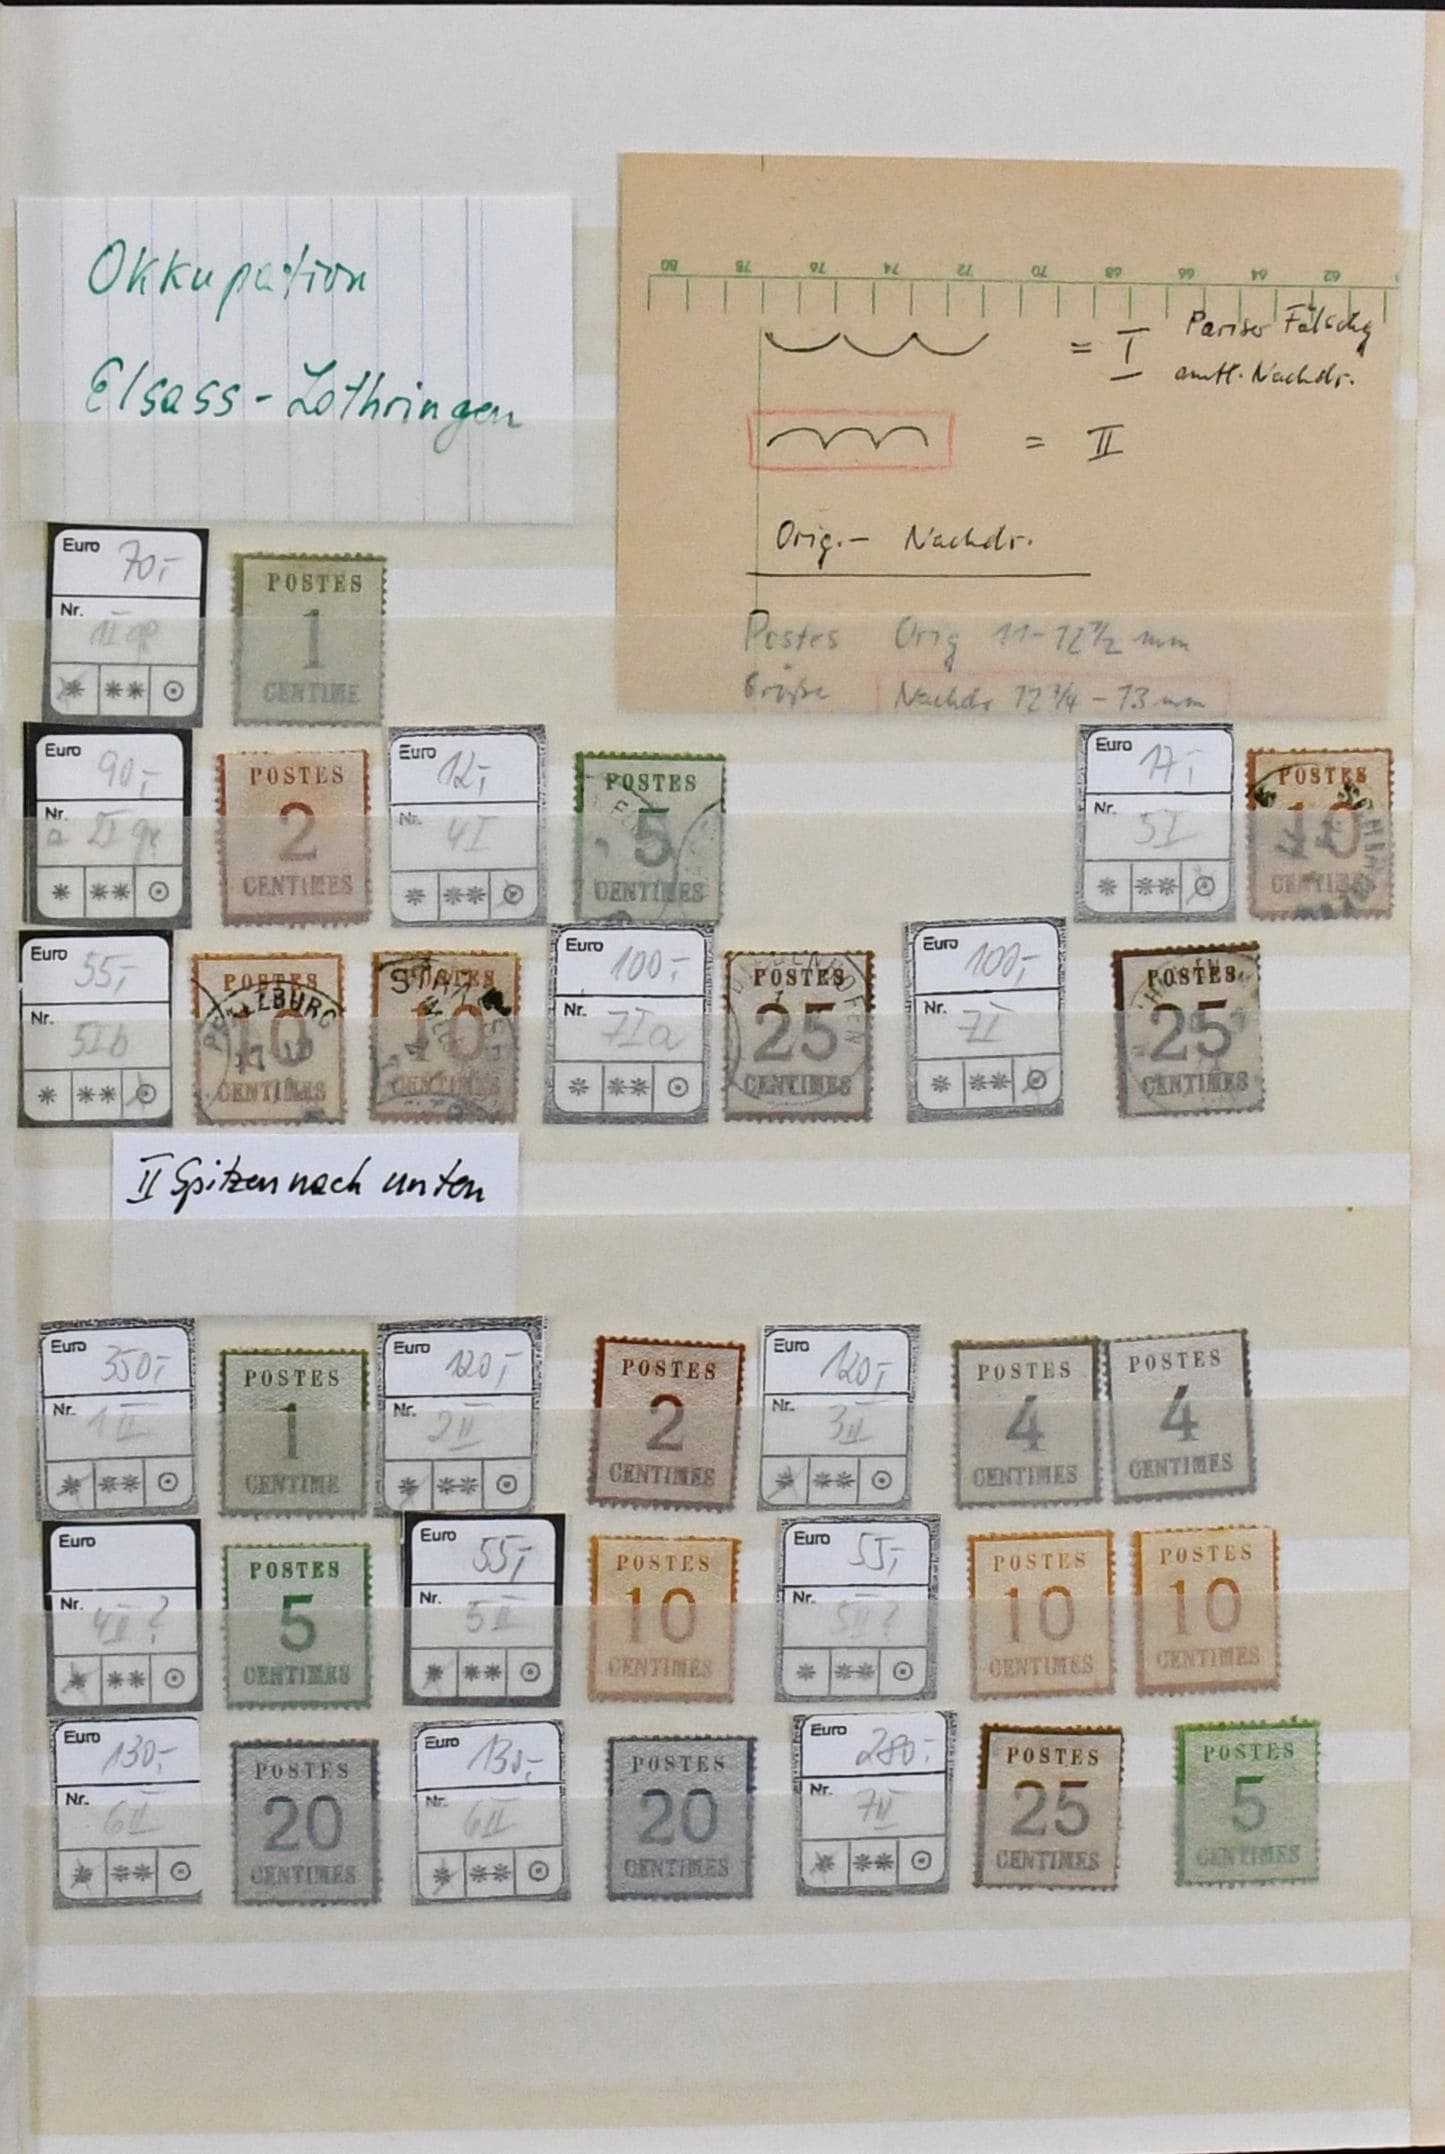 Okkupation
Elsass-Lothringen
80 78 76 74 72 70 68 66 64 62
= I Pariser Fälschg
amtl. Nachdr.
= II
Orig.- Nachdr.
Postes Orig 11-12 1/2 mm
Größe Nachdr 12 3/4 - 13 mm
Euro 70,-
Nr.
* ** ⊙
POSTES
1
CENTIME
Euro 90,-
Nr.
* ** ⊙
POSTES
2
CENTIMES
Euro 12,-
Nr. 4I
* ** ⊙
POSTES
5
CENTIMES
Euro 17,-
Nr. 5I
* ** ⊙
POSTES
10
CENTIMES
Euro 55,-
Nr. 5Ib
* ** ⊙
POSTES
10
CENTIMES
POSTES
10
CENTIMES
Euro 100,-
Nr. 7Ia
* ** ⊙
POSTES
25
CENTIMES
Euro 100,-
Nr. 7I
* ** ⊙
POSTES
25
CENTIMES
II Spitzen nach unten
Euro 350,-
Nr. 1II
* ** ⊙
POSTES
1
CENTIME
Euro 120,-
Nr. 2II
* ** ⊙
POSTES
2
CENTIMES
Euro 120,-
Nr. 3II
* ** ⊙
POSTES
4
CENTIMES
POSTES
4
CENTIMES
Euro
Nr. 4II?
* ** ⊙
POSTES
5
CENTIMES
Euro 55,-
Nr. 5II
* ** ⊙
POSTES
10
CENTIMES
Euro 55,-
Nr. 5II?
* ** ⊙
POSTES
10
CENTIMES
POSTES
10
CENTIMES
Euro 130,-
Nr. 6II
* ** ⊙
POSTES
20
CENTIMES
Euro 130,-
Nr. 6II
* ** ⊙
POSTES
20
CENTIMES
Euro 280,-
Nr. 7II
* ** ⊙
POSTES
25
CENTIMES
POSTES
5
CENTIMES